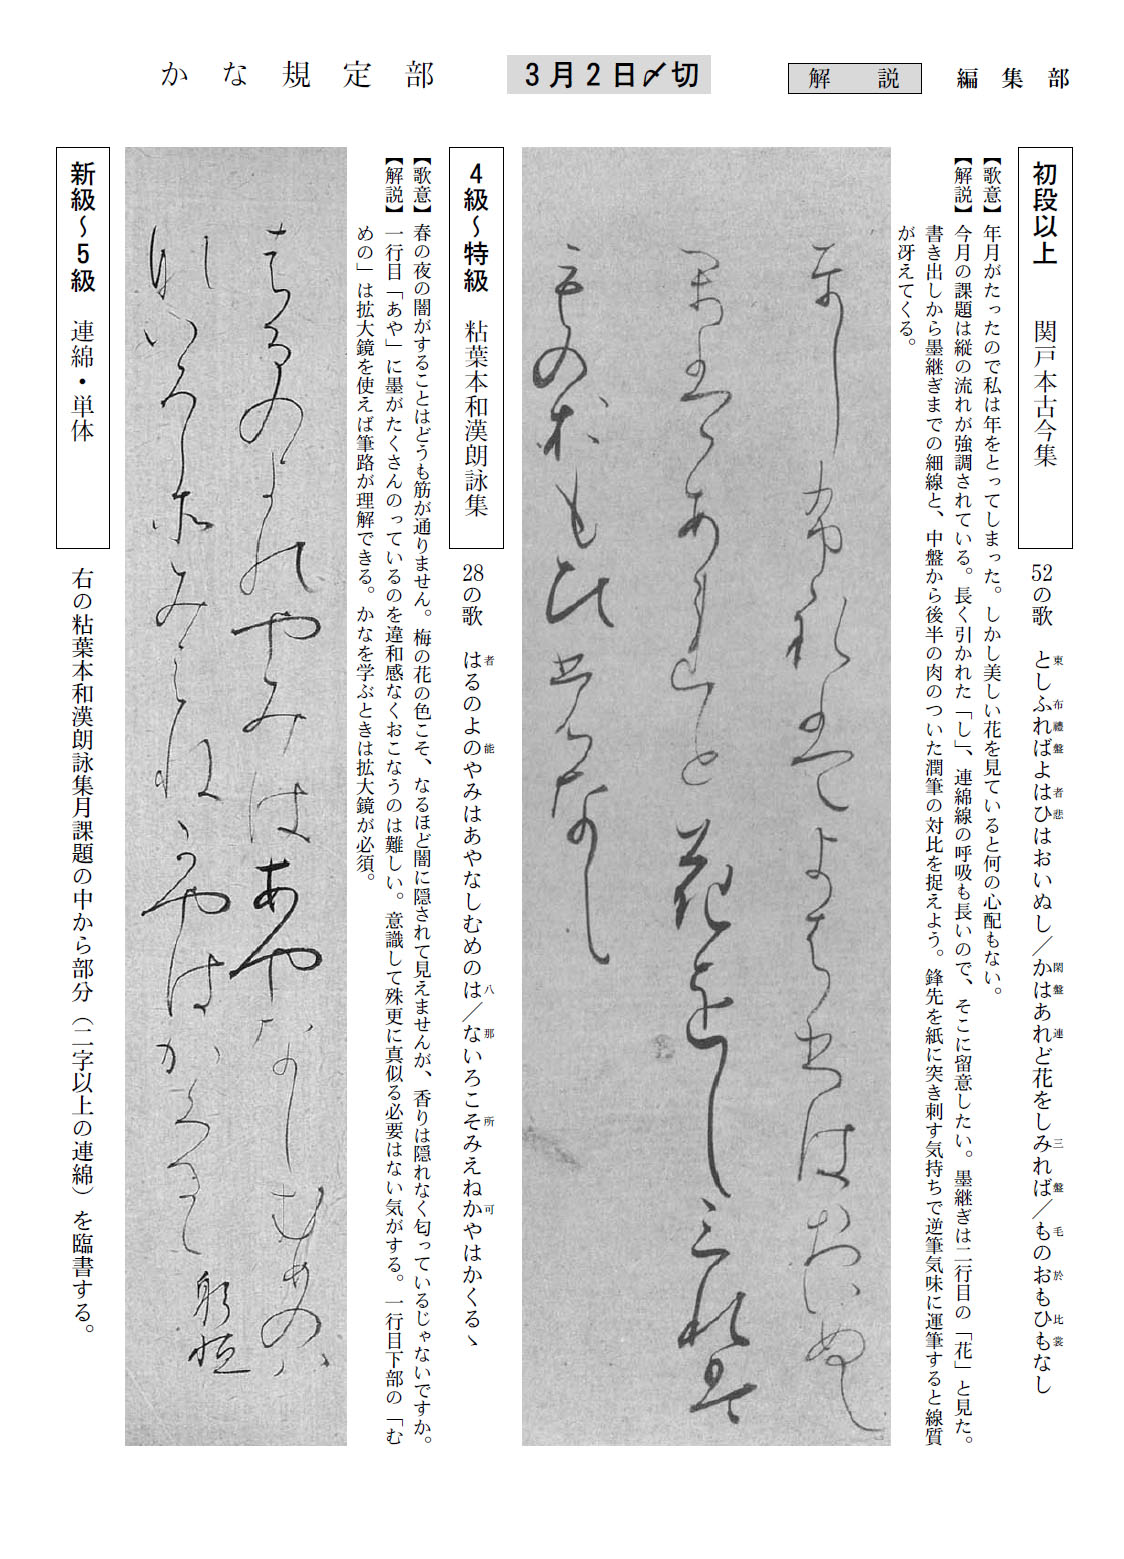 かな規定部
3月2日〆切
解説
編集部
初段以上 関戸本古今集
52の歌 としふればよはひはおいぬし／かはあれど花をしみれば／ものおもひもなし
東 布禮盤 者悲 閑盤 連 三 盤 毛 於 比裳
【歌意】年月がたったので私は年をとってしまった。しかし美しい花を見ていると何の心配もない。
【解説】今月の課題は縦の流れが強調されている。長く引かれた「し」、連綿線の呼吸も長いので、そこに留意したい。墨継ぎは二行目の「花」と見た。
書き出しから墨継ぎまでの細線と、中盤から後半の肉のついた潤筆の対比を捉えよう。鋒先を紙に突き刺す気持ちで逆筆気味に運筆すると線質
が冴えてくる。
4級〜特級 粘葉本和漢朗詠集
28の歌 はるのよのやみはあやなしむめのは／ないろこそみえねかやはかくるヽ
者 能 八 那 所 可
【歌意】春の夜の闇がすることはどうも筋が通りません。梅の花の色こそ、なるほど闇に隠されて見えませんが、香りは隠れなく匂っているじゃないですか。
【解説】一行目「あや」に墨がたくさんのっているのを違和感なくおこなうのは難しい。意識して殊更に真似る必要はない気がする。一行目下部の「む
めの」は拡大鏡を使えば筆路が理解できる。かなを学ぶときは拡大鏡が必須。
新級〜5級 連綿・単体
右の粘葉本和漢朗詠集月課題の中から部分（二字以上の連綿）を臨書する。